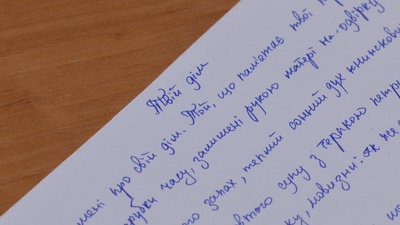 Твій дім
мені про свій дім. Той, що пам'ятає твої
рубки часу, залишені рукою матері на одвірку
ого запах, теплий сонний дух книжкови
втого супу з терпкою петру
ку, новизні: як на
що